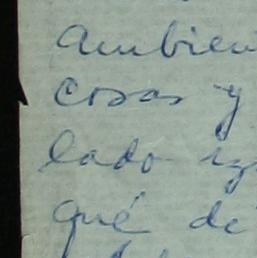 ambien
cosas y
lado iz
qué de